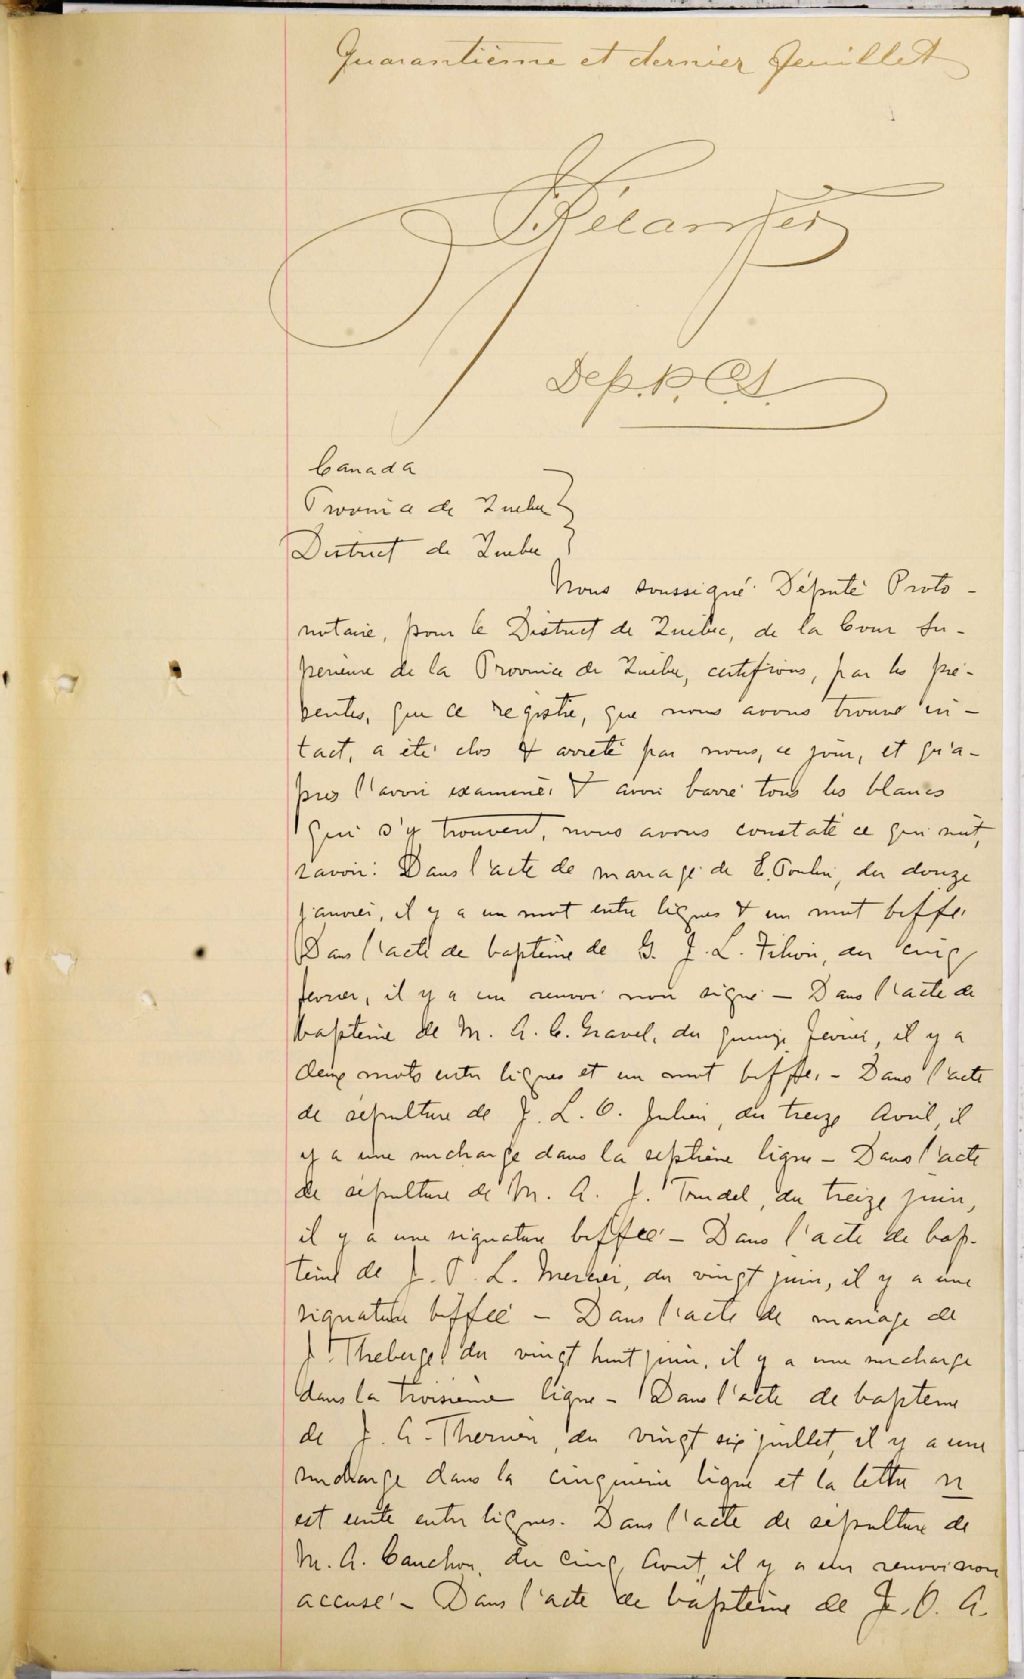 Quarantième et dernier feuillet
Dep. P. C. S.
Canada
Province de Québec
District de Québec
Nous soussigné Député Proto-
notaire, pour le District de Québec, de la Cour Su-
périeure de la Province de Québec, certifions, par les pré-
sentes, que ce régistre, que nous avons trouvé in-
tact, a été clos & arrêté par nous, ce jour, et qu'a-
près l'avoir examiné & avoir barré tous les blancs
qui s'y trouvent, nous avons constaté ce qui suit,
savoir: Dans l'acte de mariage de E. Poulin, du douze
janvier, il y a un mot entre lignes & un mot biffé
Dans l'acte de baptême de G. J. L. Filion, du cinq
fevrier, il y a un renvoi non signé - Dans l'acte de
baptême de M. A. C. Gravel, du quinze février, il y a
deux mots entre lignes et un mot biffé. - Dans l'acte
de sépulture de J. L. O. Julien, du treize Avril, il
y a une surcharge dans la septième ligne - Dans l'acte
de sépulture de M. A. J. Trudel, du treize juin,
il y a une signature biffée - Dans l'acte de bap-
tême de J. P. L. Mercier, du vingt juin, il y a une
signature biffée - Dans l'acte de mariage de
J. Theberge du vingt huit juin, il y a une surcharge
dans la troisième ligne - Dans l'acte de bapteme
de J. A. Therrien, du vingt six juillet, il y a une
surcharge dans la cinquième ligne et la lettre n
est écrite entre lignes. Dans l'acte de sépulture de
M. A. Cauchon, du cinq Aout, il y a un renvoi non
accusé - Dans l'acte de baptême de J. O. A.